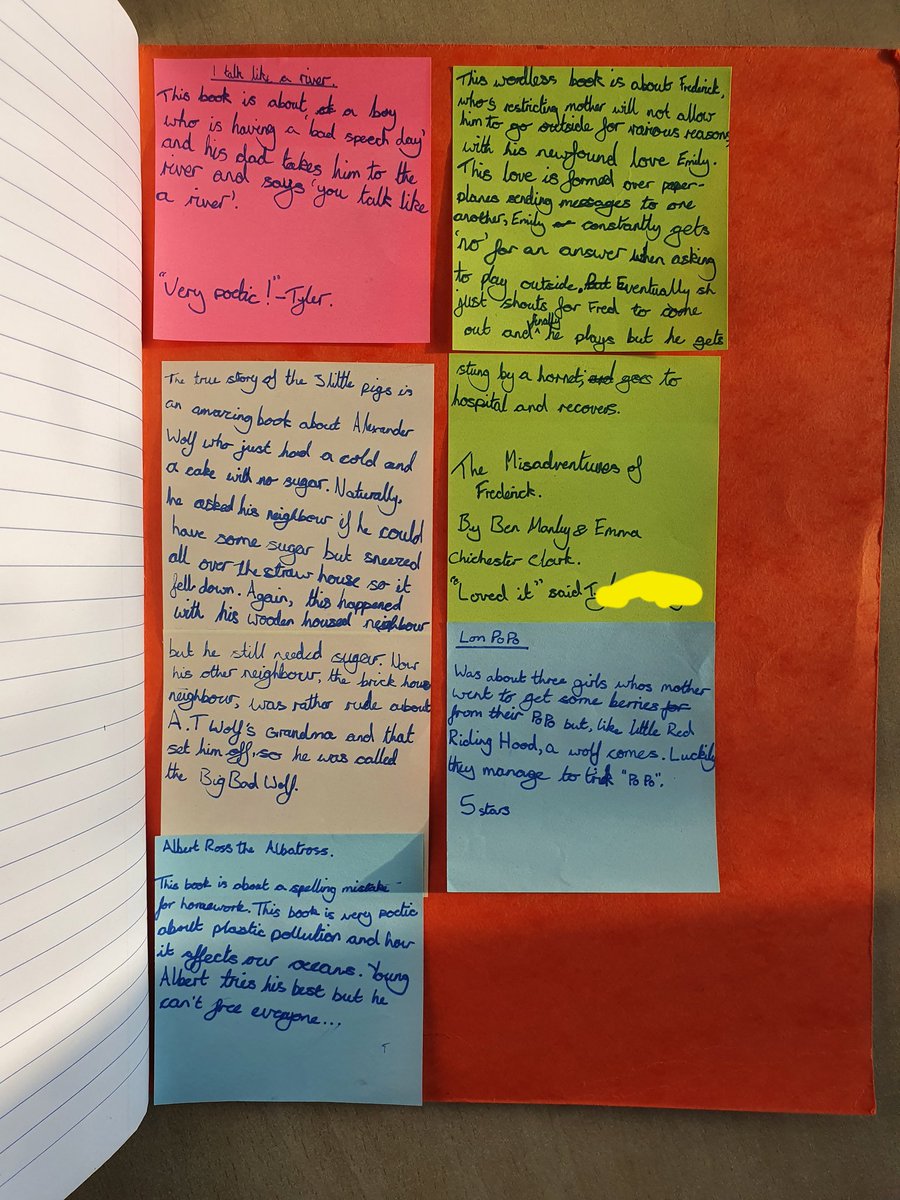 I talk like a river.
This book is about a boy
who is having a 'bad speech day'
and his dad takes him to the
river and says 'you talk like
a river'.
"Very poetic!" - Tyler.
The true story of the 3 little pigs is
an amazing book about Alexander
Wolf who just had a cold and
a cake with no sugar. Naturally,
he asked his neighbour if he could
have some sugar but sneezed
all over the straw house so it
fell down. Again, this happened
with his wooden housed neighbour
but he still needed sugar. Now
his other neighbour, the brick house
neighbour, was rather rude about
A.T Wolf's Grandma and that
set him off, so he was called
the Big Bad Wolf.
Albert Ross the Albatross.
This book is about a spelling mistake
for homework. This book is very poetic
about plastic pollution and how
it affects our oceans. Young
Albert tries his best but he
can't free everyone...
This wordless book is about Frederick,
who's restricting mother will not allow
him to go outside for various reasons,
with his newfound love Emily.
This love is formed over paper-
planes sending messages to one
another, Emily constantly gets
'no' for an answer when asking
to play outside. Eventually sh
just shouts for Fred to come
out and finally he plays but he gets
stung by a hornet, goes to
hospital and recovers.
The Misadventures of
Frederick.
By Ben Manley & Emma
Chichester Clark.
"Loved it" said
Lon PoPo
Was about three girls whos mother
went to get some berries for
from their PoPo but, like little Red
Riding Hood, a wolf comes. Luckily
they manage to trick "PoPo".
5 stars